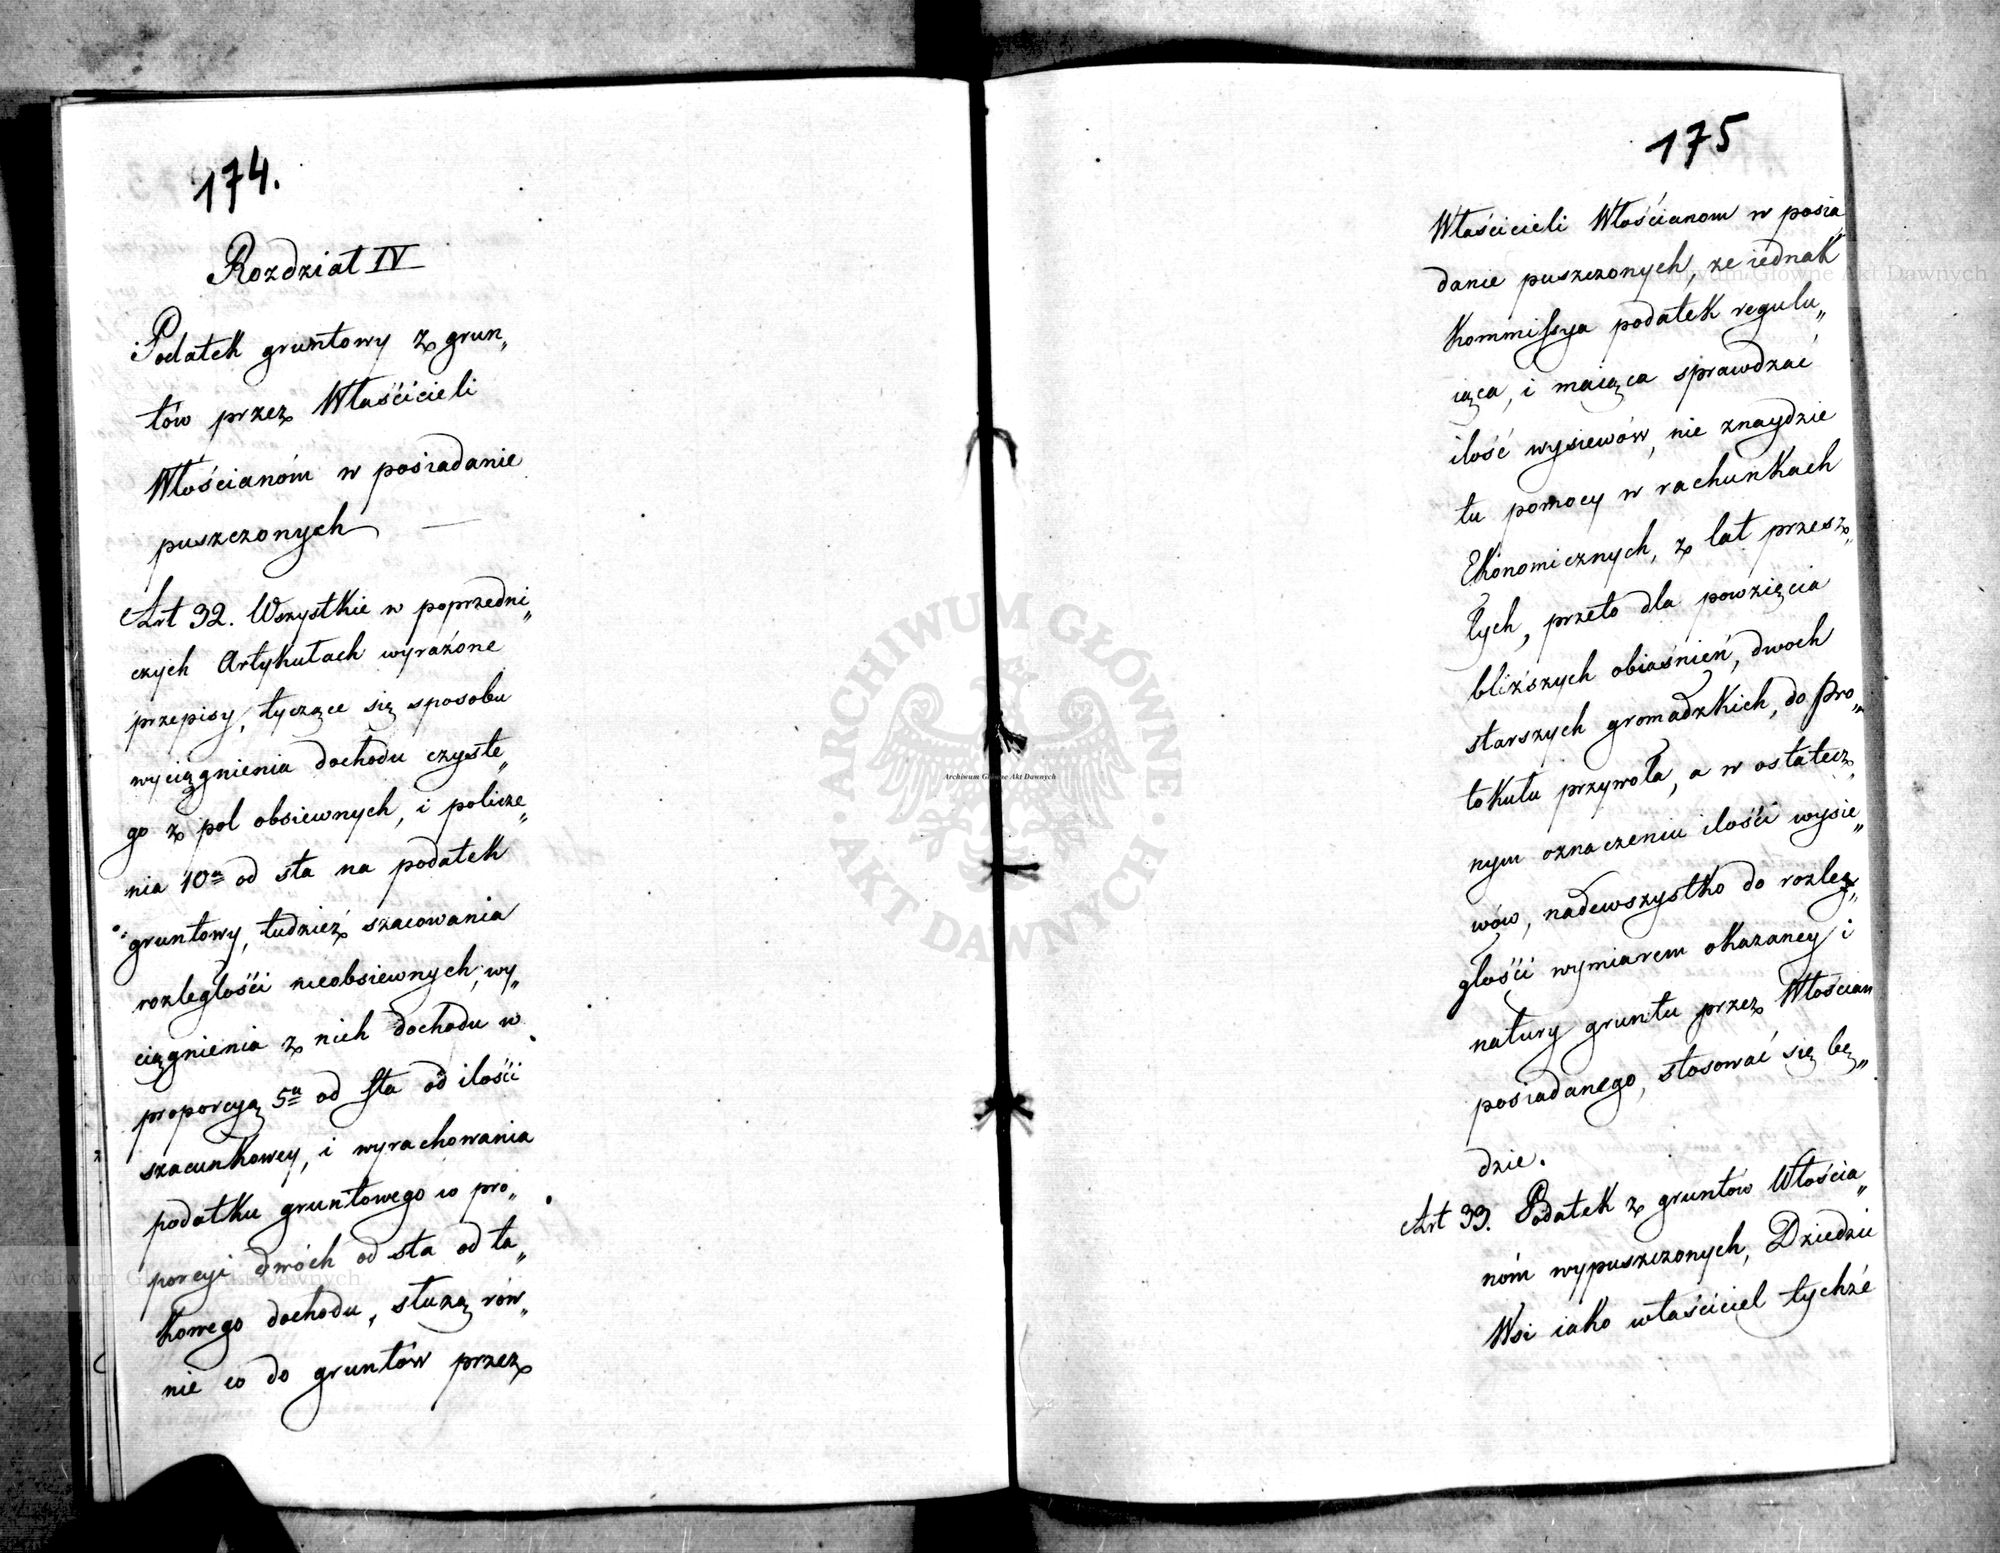 174.
Rozdział IV
Podatek gruntowy z grun„
tów przez Właścicieli
Włościanóm w posiadanie
puszczonych
Art 32. Wszystkie w poprzedni„
czych Artykułach wyrażone
przepisy, tyczące się sposobu
wyciągnienia dochodu czyste„
go z pol obsiewnych, i policze„
nia 10a od sta na podatek
gruntowy, tudzież szacowania
rozległości nieobsiewnych, wy„
ciągnienia z nich dochodu w
proporcyą 5a od sta od ilości
szacunkowey, i wyrachowania
podatku gruntowego w pro„
porcyi dwóch od sta od ta„
kowego dochodu, służą rów„
nie co do gruntów przez
175
Właścicieli Włościanom w posia„
danie puszczonych, ze iednak
Kommissya podatek regulu„
iąca, i maiąca sprawdzać
ilość wysiewów, nie znaydzie
tu pomocy w rachunkach
Ekonomicznych, z lat przesz„
łych, przeto dla powzięcia
bliższych obiaśnień, dwoch
starszych gromadzkich, do Pro„
tokułu przywoła, a w ostatecz„
nym oznaczeniu ilości wysie„
wów, nadewszystko do rozleg„
głości wymiarem okazaney i
natury gruntu przez Włościan
posiadanego, stosować się bę„
dzie.
Art 33. Podatek z gruntów Włościa„
nóm wypuszczonych, Dziedzic
Wsi iako właściciel tychże
Archiwum Główne Akt Dawnych
ARCHIWUM GŁÓWNE
AKT DAWNYCH
Archiwum Główne Akt Dawnych
Archiwum Główne Akt Dawnych